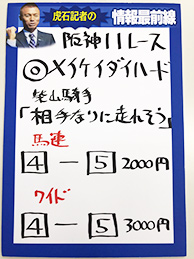 虎石記者の
情報最前線
阪神11レース
◎メイケイダイハード
柴山騎手
「相手なりに走れそう」
馬連
4－5 2000円
ワイド
4－5 3000円